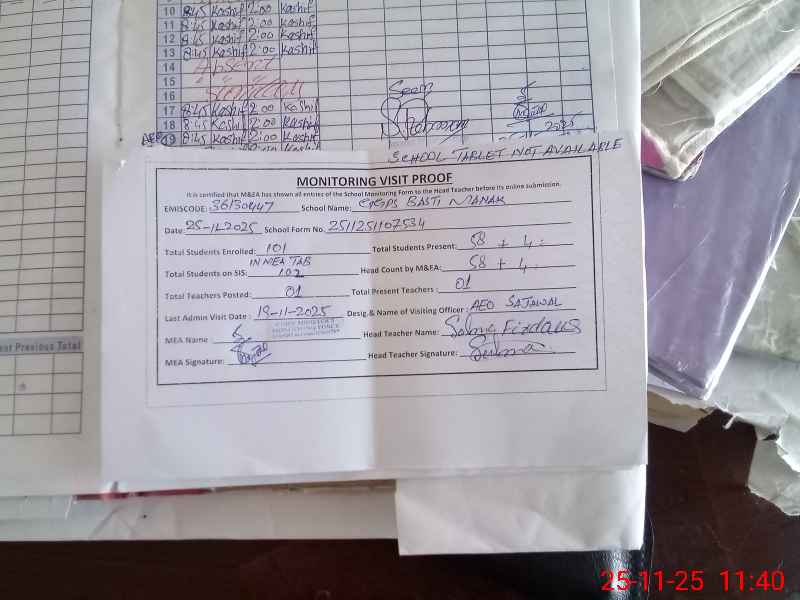 10 8:45 Kashif 2:00 Kashif
11 8:45 Kashif 2:00 Kashif
12 8:45 Kashif 2:00 Kashif
13 8:45 Kashif 2:00 Kashif
14 Absent
15
16
17 8:45 Kashif 2:00 Kashif
18 8:45 Kashif 2:00 Kashif
19 8:45 Kashif 2:00 Kashif
SCHOOL TABLET NOT AVAILABLE
MONITORING VISIT PROOF
It is certified that M&EA has shown all entries of the School Monitoring Form to the Head Teacher before its online submission.
EMISCODE: 36130447 School Name: GGPS BASTI NANAK
Date: 25-11-2025 School Form No. 2511251107534
Total Students Enrolled: 101 Total Students Present: 58 + 4
IN MEA TAB
Total Students on SIS: 102 Head Count by M&EA: 58 + 4
Total Teachers Posted: 01 Total Present Teachers: 01
Last Admin Visit Date: 19-11-2025 Desig.& Name of Visiting Officer: AEO SAJAWAL
MEA Name: Head Teacher Name: Firdaus
MEA Signature: Head Teacher Signature:
ent Previous Total
25-11-25 11:40